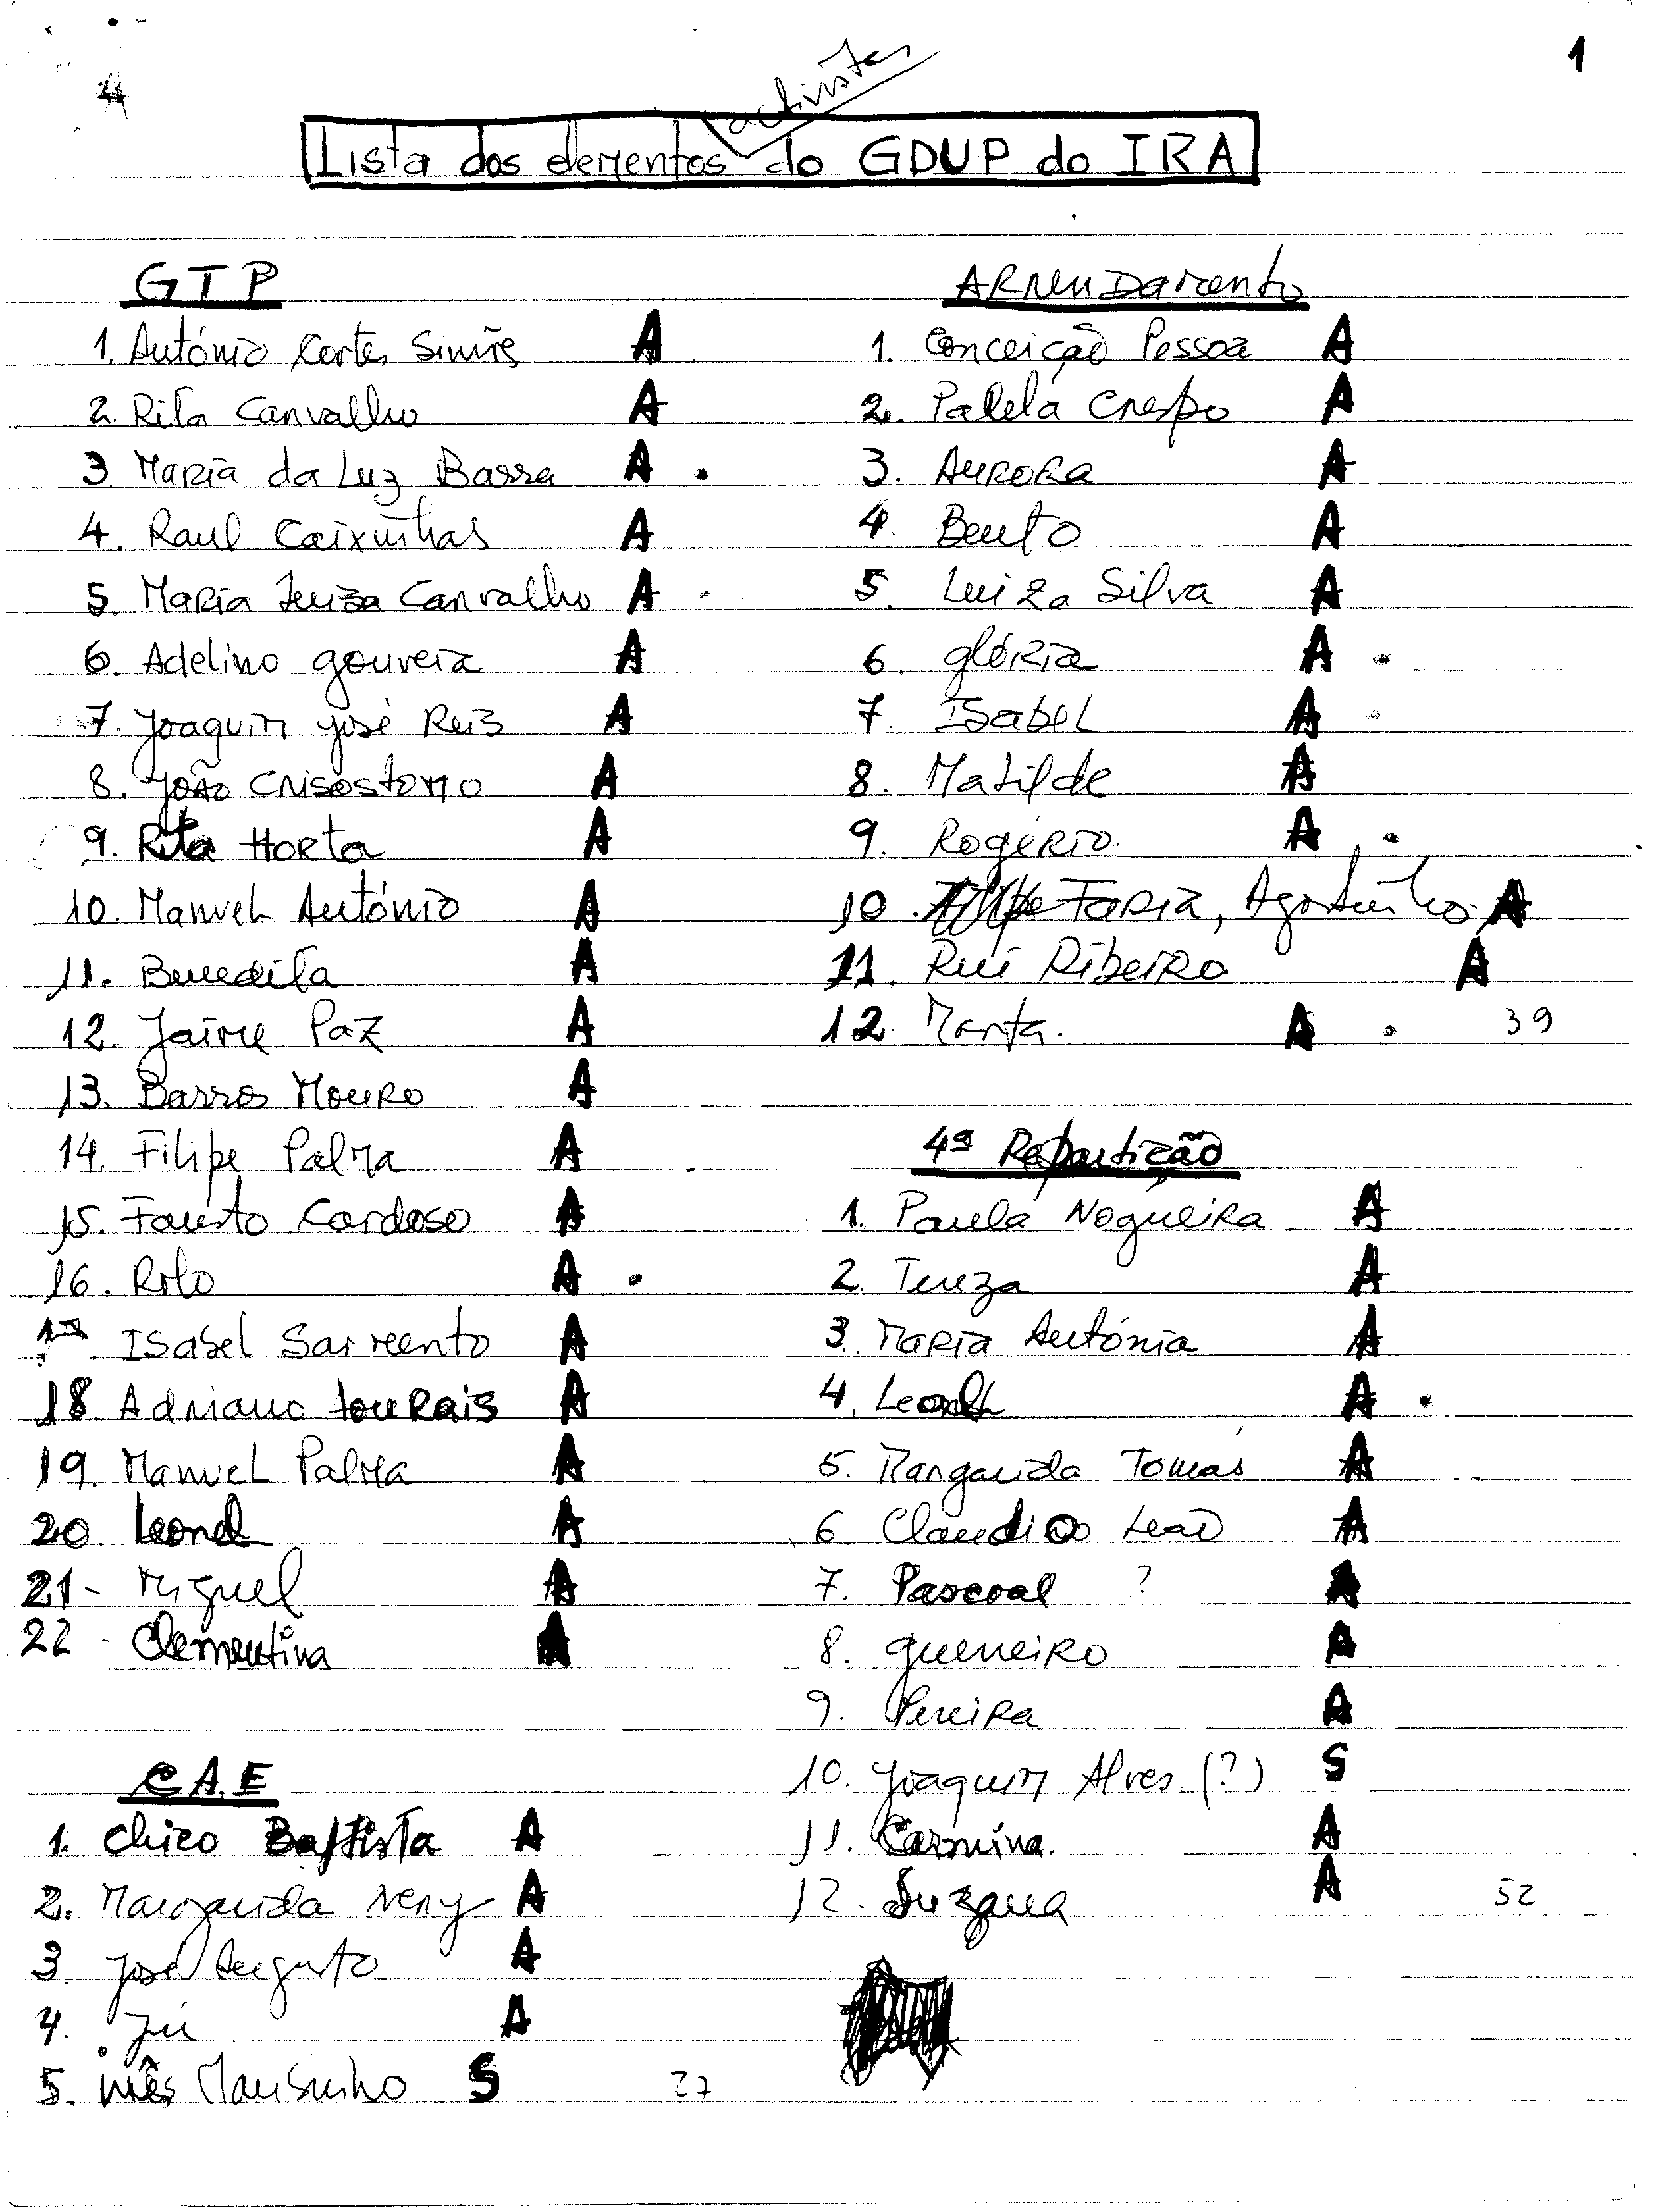 1
activistas
Lista dos elementos do GDUP do IRA
GTP
1. António Cortes Simões A
2. Rita Carvalho A
3. Maria da Luz Barra A .
4. Raul Caixinhas A
5. Maria Luiza Carvalho A .
6. Adelino Gouveia A
7. Joaquim José Reis A
8. João Crisostomo A
9. Rita Horta A
10. Manuel António A
11. Benedita A
12. Jaime Paz A
13. Barros Mouro A
14. Filipe Palma A
15. Fausto Cardoso A
16. Rito A .
17. Isabel Sarmento A
18 Adriano Tourais A
19. Manuel Palma A
20 Leonel A
21 - Miguel A
22 - Clementina A
C.A.E
1. Chico Baptista A
2. Margarida Nery A
3 José Augusto A
4. Jú A
5. Inês Mansinho S 27
Arrendamento
1. Conceição Pessoa A
2. Crespo A
3. Aurora A
4. Bento A
5. Luiza Silva A
6. Glória A .
7. Isabel A .
8. Matilde A
9. Rogério A .
10. Faria, Agostinho A
11. Rui Ribeiro A
12. Marta. A . 39
4ª Repartição
1. Paula Nogueira A
2. Tereza A
3. Maria Antónia A
4. Leonel A .
5. Margarida Tomás A
6 Claudino Leão A
7. Pascoal ? A
8. Guerreiro A
9. Pereira A
10. Joaquim Alves (?) S
11. Carmina. A
12. Suzana A 52